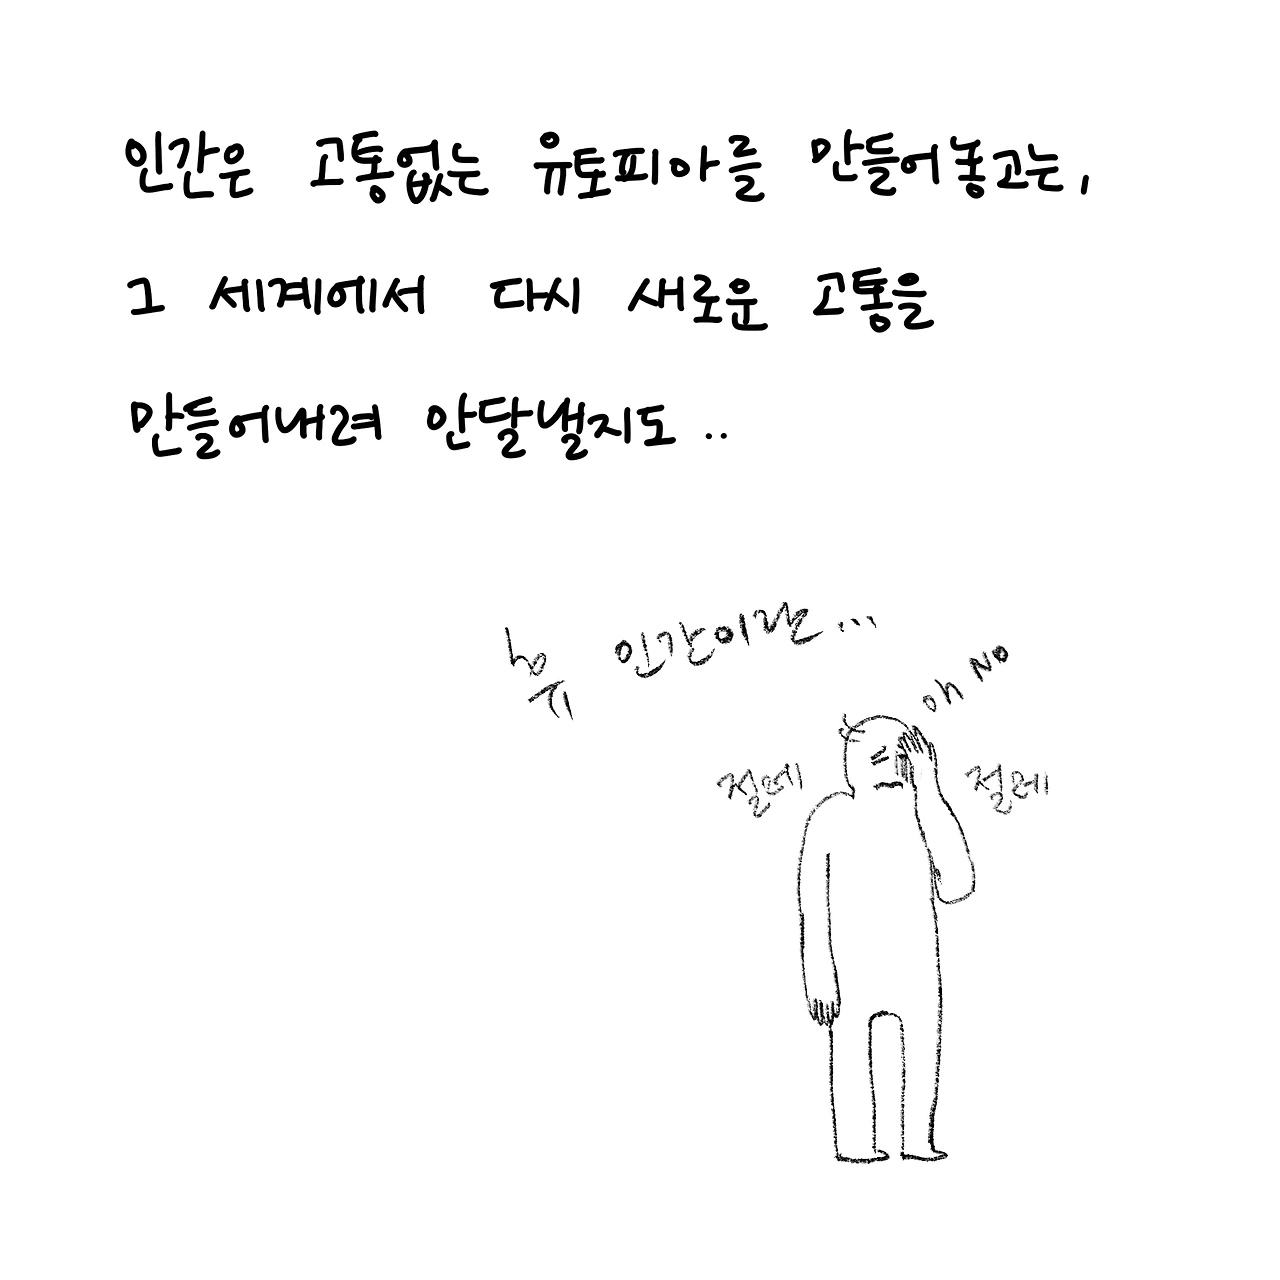 인간은 고통없는 유토피아를 만들어놓고는,
그 세계에서 다시 새로운 고통을
만들어내려 안달낼지도..
휴 인간이란...
oh NO
절레
절레